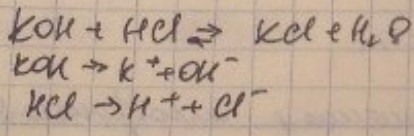 KOH + HCl ⇌ KCl + H₂O
KOH → K⁺ + OH⁻
HCl → H⁺ + Cl⁻